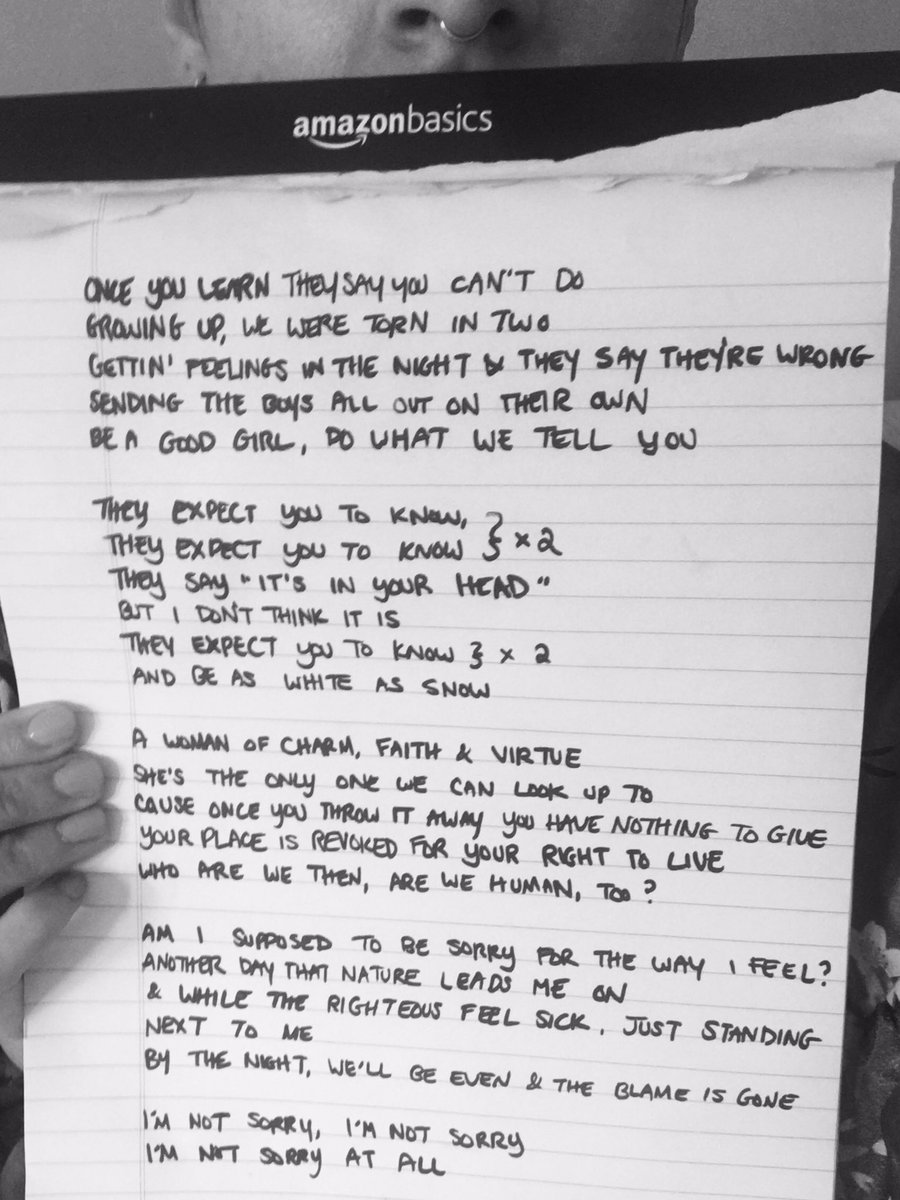 amazonbasics
ONCE YOU LEARN THEY SAY YOU CAN'T DO
GROWING UP, WE WERE TORN IN TWO
GETTIN' FEELINGS IN THE NIGHT & THEY SAY THEY'RE WRONG
SENDING THE BOYS ALL OUT ON THEIR OWN
BE A GOOD GIRL, DO WHAT WE TELL YOU
THEY EXPECT YOU TO KNOW,
THEY EXPECT YOU TO KNOW } x 2
THEY SAY "IT'S IN YOUR HEAD"
BUT I DON'T THINK IT IS
THEY EXPECT YOU TO KNOW } x 2
AND BE AS WHITE AS SNOW
A WOMAN OF CHARM, FAITH & VIRTUE
SHE'S THE ONLY ONE WE CAN LOOK UP TO
CAUSE ONCE YOU THROW IT AWAY YOU HAVE NOTHING TO GIVE
YOUR PLACE IS REVOKED FOR YOUR RIGHT TO LIVE
WHO ARE WE THEN, ARE WE HUMAN, TOO?
AM I SUPPOSED TO BE SORRY FOR THE WAY I FEEL?
ANOTHER DAY THAT NATURE LEADS ME ON
& WHILE THE RIGHTEOUS FEEL SICK, JUST STANDING
NEXT TO ME
BY THE NIGHT, WE'LL BE EVEN & THE BLAME IS GONE
I'M NOT SORRY, I'M NOT SORRY
I'M NOT SORRY AT ALL